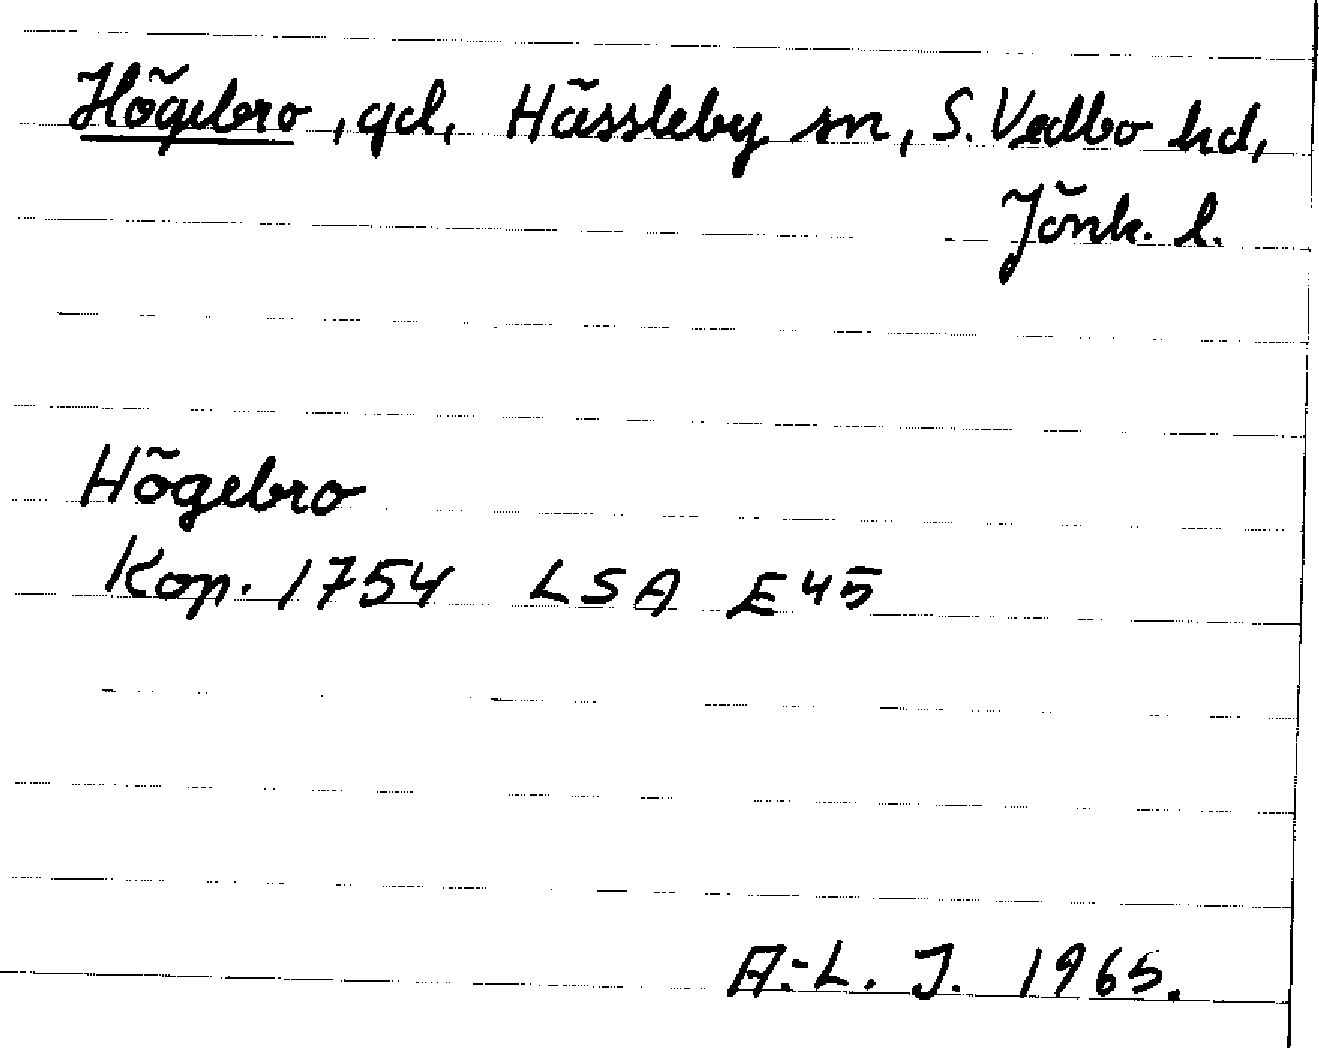 Högebro, gd, Hässleby sn, S. Vedbo hd,
Jönk. l.
Högebro
Kop. 1754 LSA E45
A.-L. J. 1965.